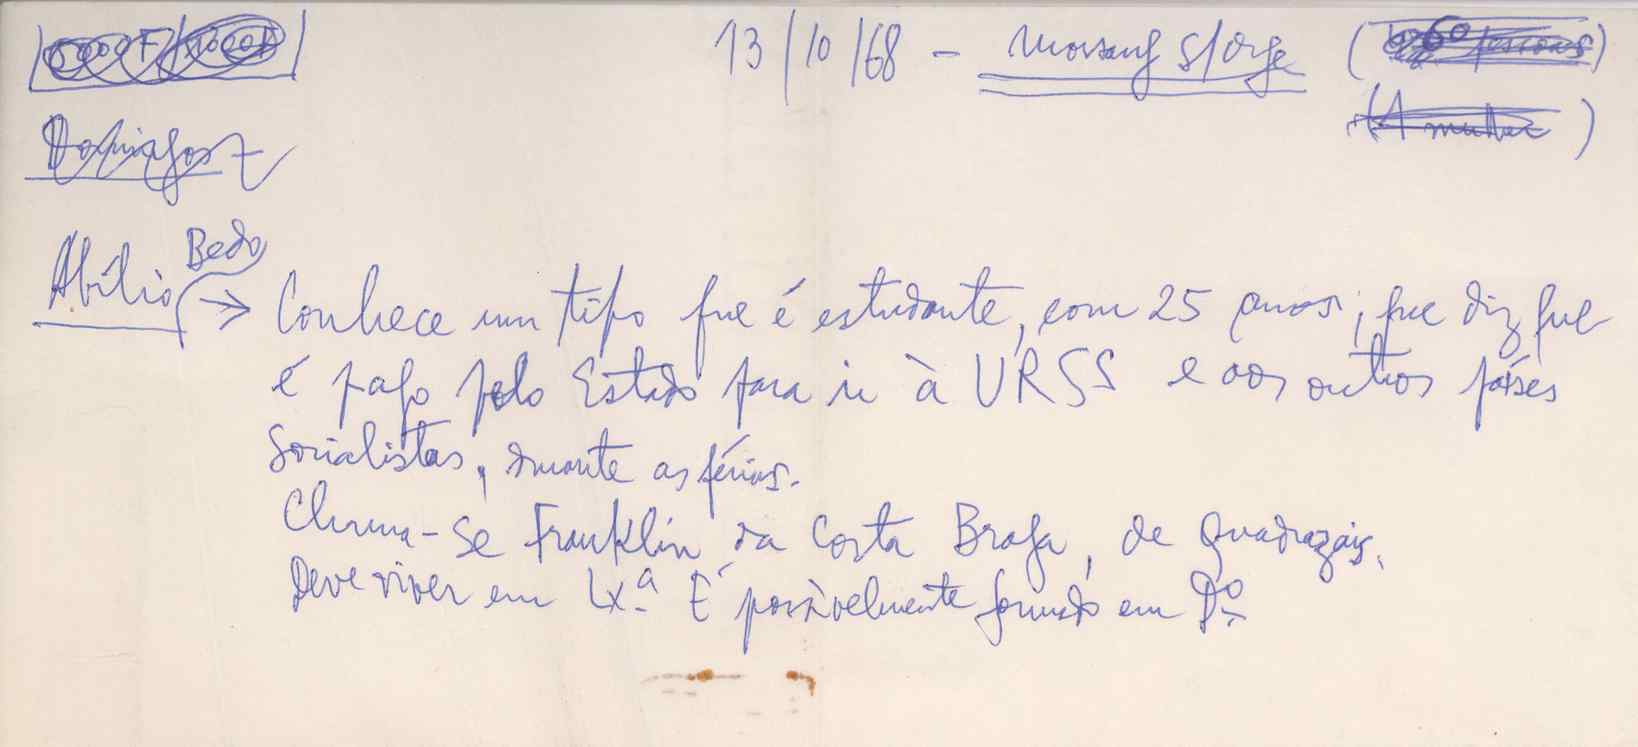 13/10/68 - Morsang s/Orge (60 pessoas)
(A mulher)
Domingos
Bedo
Abílio → Conhece um tipo que é estudante, com 25 anos, que diz que
é pago pelo Estado para ir à URSS e aos outros países
socialistas, durante as férias.
Chama-se Franklin da Costa Braga, de Quadrazais.
Deve viver em Lx.ª É possivelmente formado em D.º